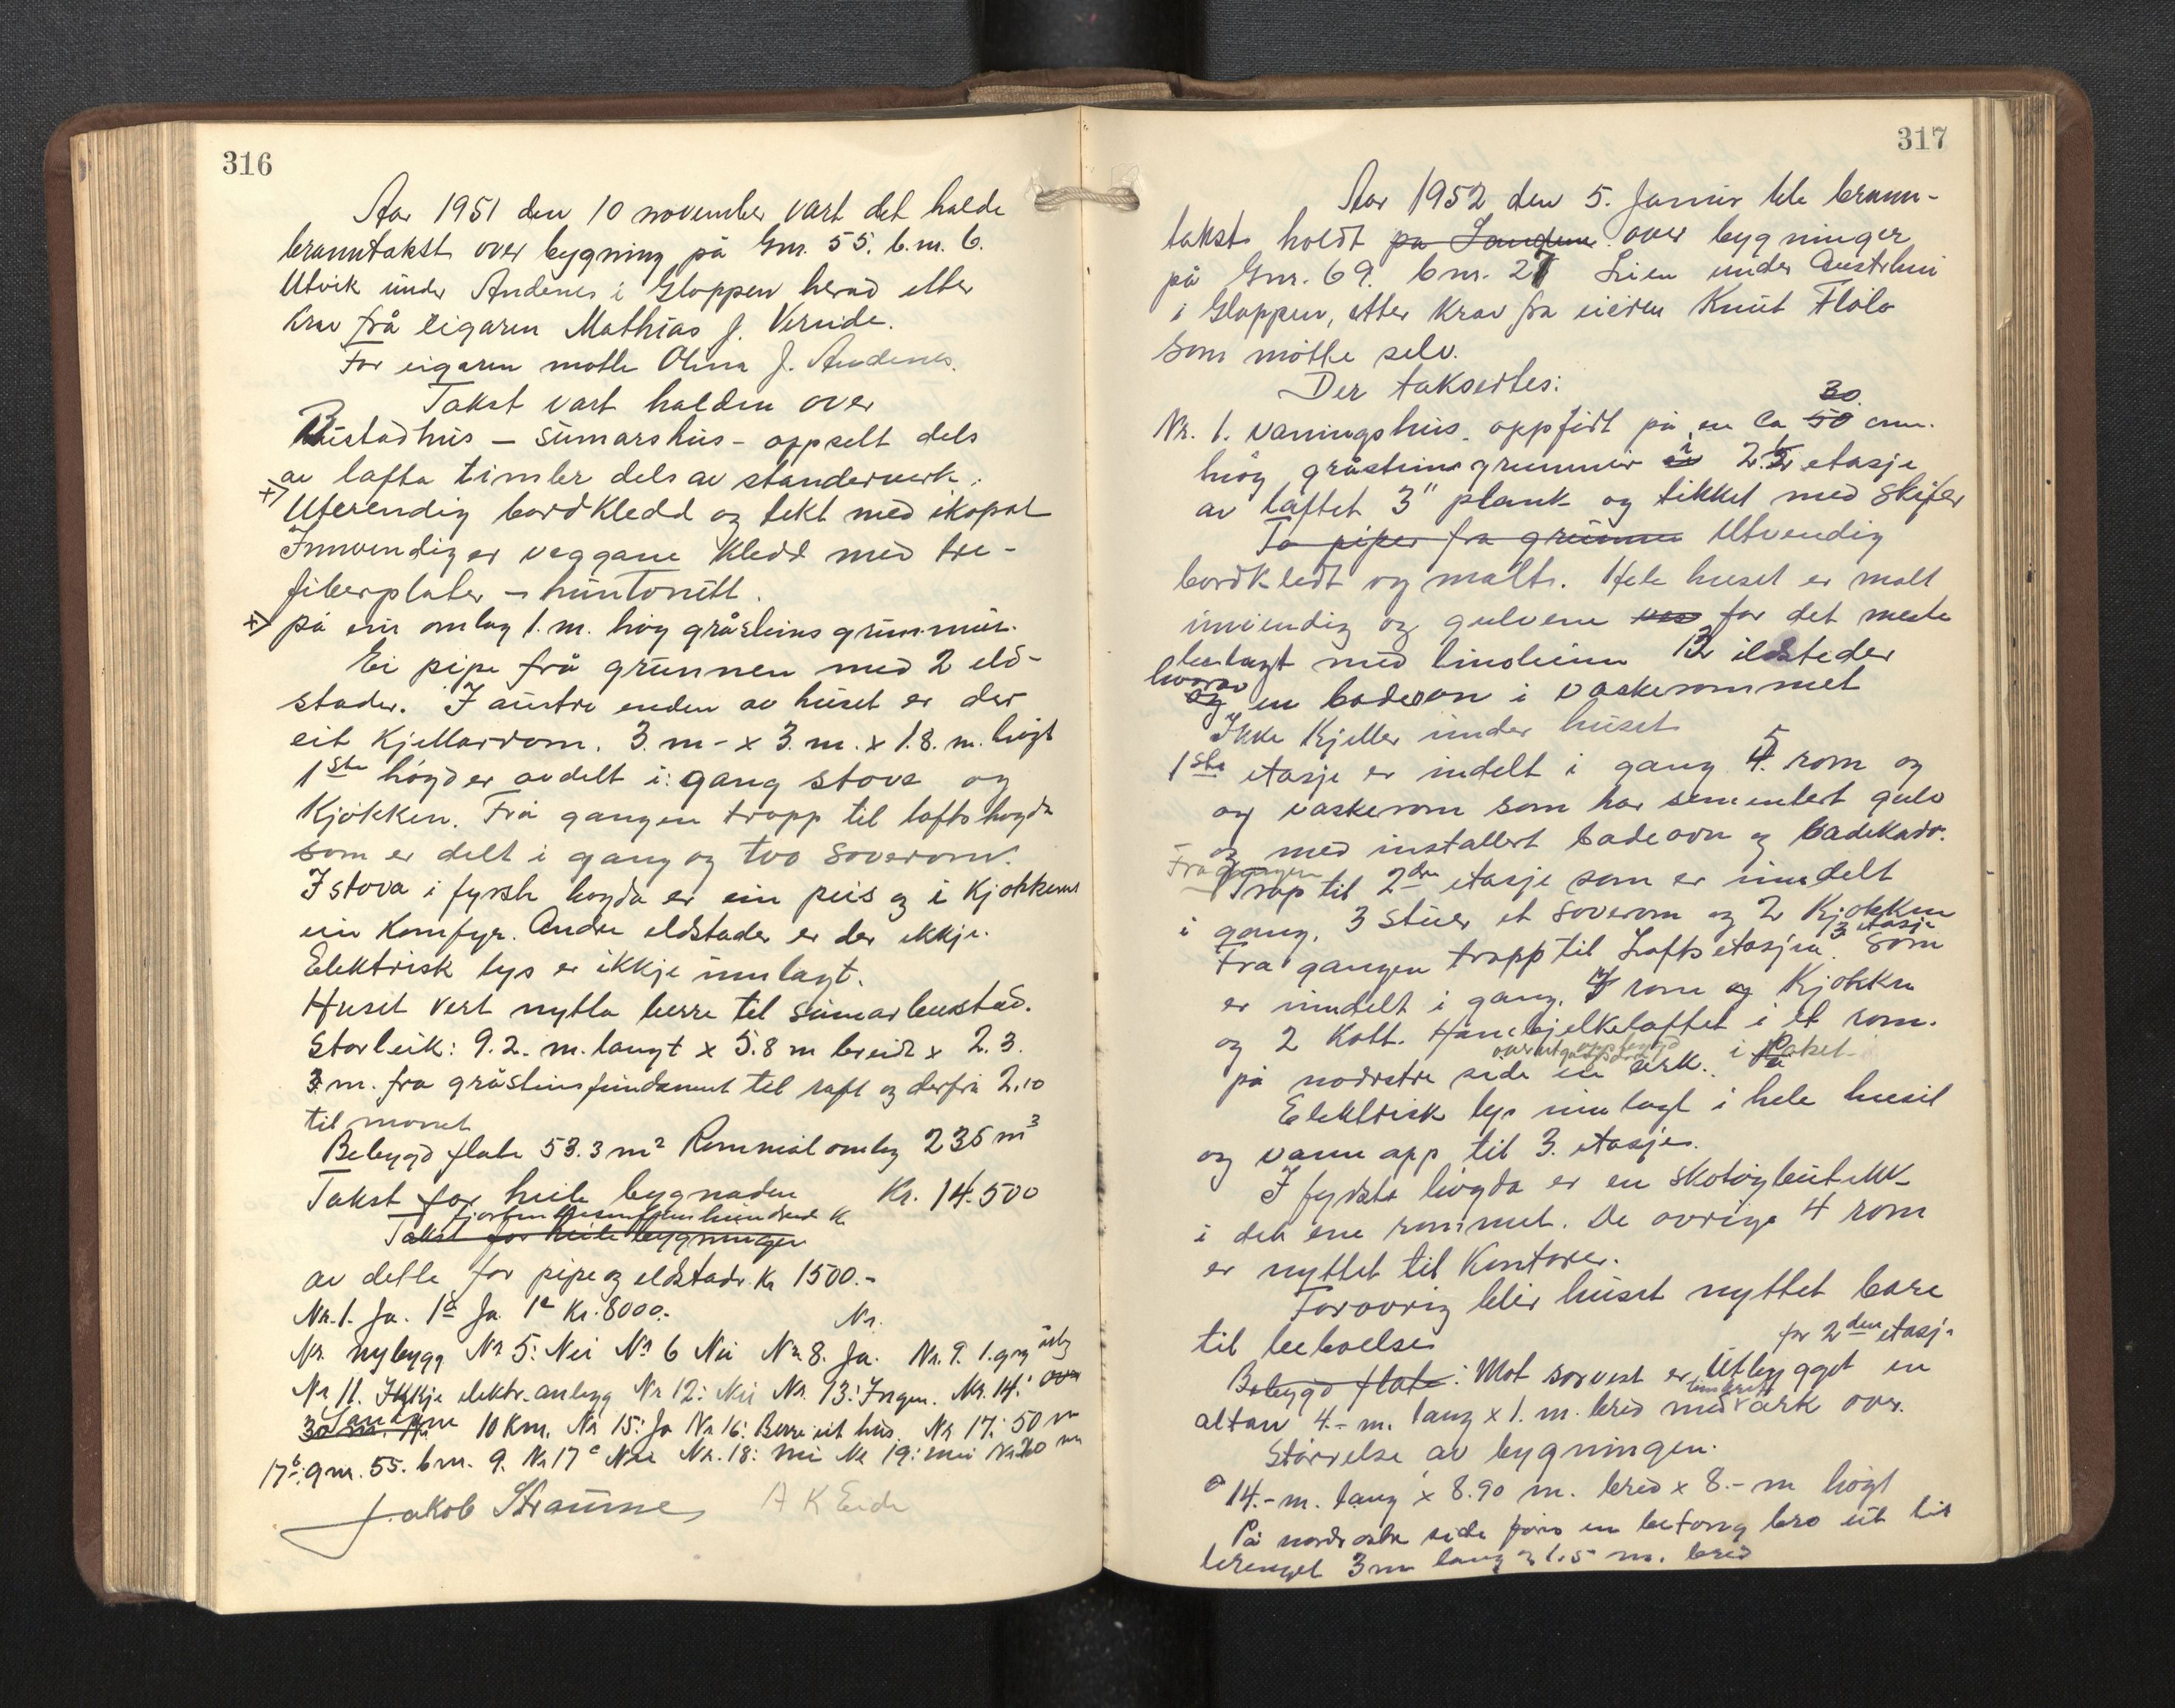 316
Aar 1951 den 10 november vart det halde
branntakst over bygning på Gnr. 55. b.m. 6.
Utvik under Andenes i Gloppen herad etter
krav frå eigaren Mathias J. Vereide.
For eigaren møtte Olina J. Andenes.
Takst vart halden over
Bustadhus – sumarshus – oppsett dels
av lafta timber dels av standerverk.
x) Utvendig bordkledd og tekt med ikopal
Innvendig er veggane kledd med tre-
fiberplater – huntonitt.
x) på ein omlag 1. m. høg gråsteins grunnmur.
Ei pipe frå grunnen med 2 eld-
stader. I austre enden av huset er der
eit kjellarrom. 3. m - x 3. m. x 1.8. m. høgt
1ste høgd er avdelt i: gang stova og
Kjøkken. Frå gangen trapp til loftshøgda
som er delt i gang og tvo soverom.
I stova i fyrste høgda er ein peis og i kjøkkenet
ein komfyr. Andre eldstader er der ikkje.
Elektrisk lys er ikkje innlagt.
Huset vert nytta berre til sumarbustad.
Storleik: 9.2. m. langt x 5.8 m breidt x 2.3.
3 m. fra gråsteinsfundament til raft og derfrå 2.10
til mønet
Bebygd flate 53.3 m² Rommål omlag 235 m³
Takst for heile bygnaden Kr. 14.500
fjortentusenfemhundred kr
Takst for heile bygningen
av dette for pipe og eldstadr. Kr 1500.-
Nr. 1. Ja. 1a Ja 1c Kr. 8000.- Nr.
Nr. nybygg Nr 5: Nei Nr 6 Nei Nr. 8. Ja. Nr. 9. 1. gng årleg
Nr 11. Ikkje elektr. anlegg Nr 12: Nei Nr. 13: Ingen. Nr. 14: over
Sandane 10 km. Nr 15: Ja Nr 16: Berre eit hus. Nr 17: 50 m
17b: gnr. 55. bnr. 9. Nr 17c Nei Nr. 18: nei Nr 19: nei Nr 20 m
Jakob Straume A K Eide
317
Aar 1952 den 5. Januar ble brann-
takst holdt på Sandane over bygninger
på Gnr. 69. bnr. 27 Lien under Austrheim
i Gloppen, etter krav fra eieren Knut Fløto
som møtte selv.
Der taksertes:
30
Nr. 1. vaningshus. oppført på en ca 50 cm.
høg gråsteins grunnmur i 2 1/2 etasje
av laftet 3" plank og tekket med skifer
To piper fra grunnen Utvendig
bordkledt og malt. Hele huset er malt
innvendig og gulvene for det meste
belagt med linoleum 12 ildsteder
hvorav og en badeovn i vaskerommet
Ikke Kjeller under huset
1ste etasje er indelt i gang 5 rom og
og vaskerom som har sementert gulv
og med installert badeovn og badekar.
Fra gangen Trap til 2den etasje som er inndelt
i gang, 3 stuer et soverom og 2 Kjøkken
Fra gangen trapp til Loftsetasjen 3 etasje som
er inndelt i gang, 4 rom og Kjøkken
og 2 kott. Hanebjelkeloftet i et rom.
på nordre side en ark. i taket
Elektrisk lys innlagt i hele huset
og vann opp til 3. etasje.
I fyrste høgda er en skotøybutikk
i det ene rommet. De øvrige 4 rom
er nyttet til Kontorer.
Forøvrig blir huset nyttet bare
til beboelse
for 2den etasje
Bebygd flate: Mot sørvest er Utbygget en
altan 4.- m. lang x 1. m. bred med ark over.
Størrelse av bygningen.
14.- m. lang x 8.90 m. bred x 8.- m høgt
På nordøstre side føres en betong bro ut til
terenget 3 m lang og 1.5 m. bred